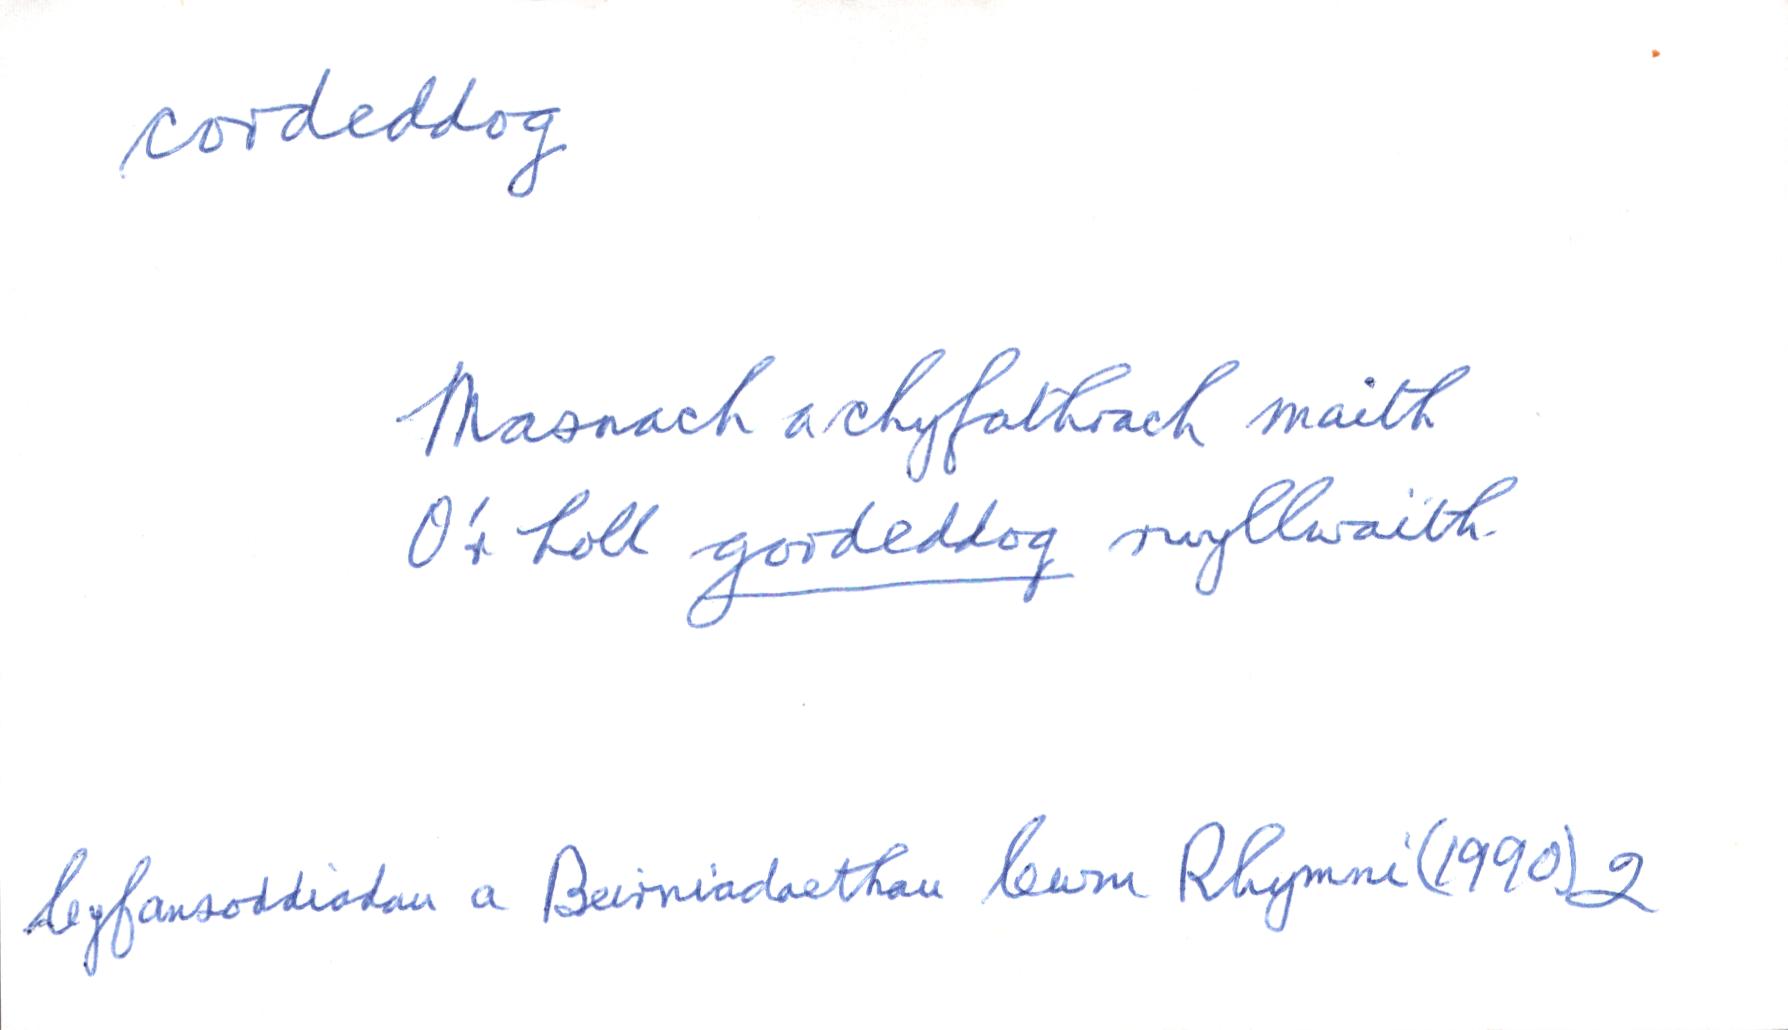 cordeddog
Masnach a chyfathrach maith
O'r holl gordeddog rwyllwaith.
Cyfansoddiadau a Beirniadaethau Cwm Rhymni (1990) 2